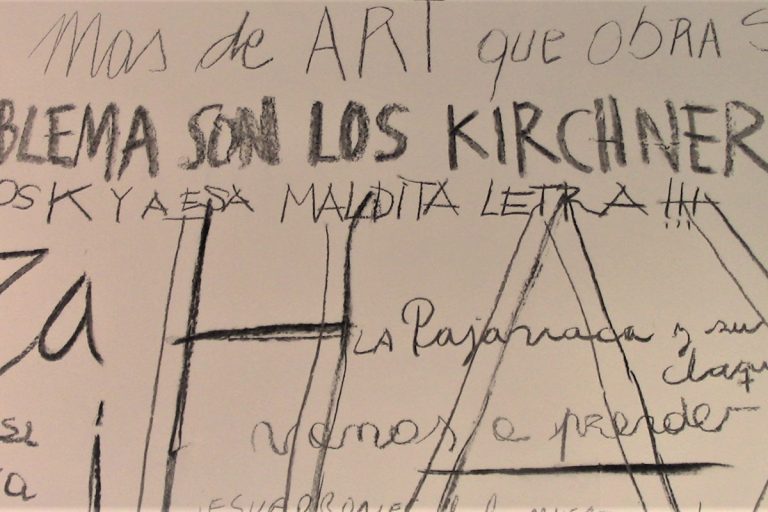 Mas de ART que OBRA S
BLEMA SON LOS KIRCHNER
OSK Y A ESA MALDITA LETRA !!!
za HA
LA Pajarraca y su
claqu
vamos a prender